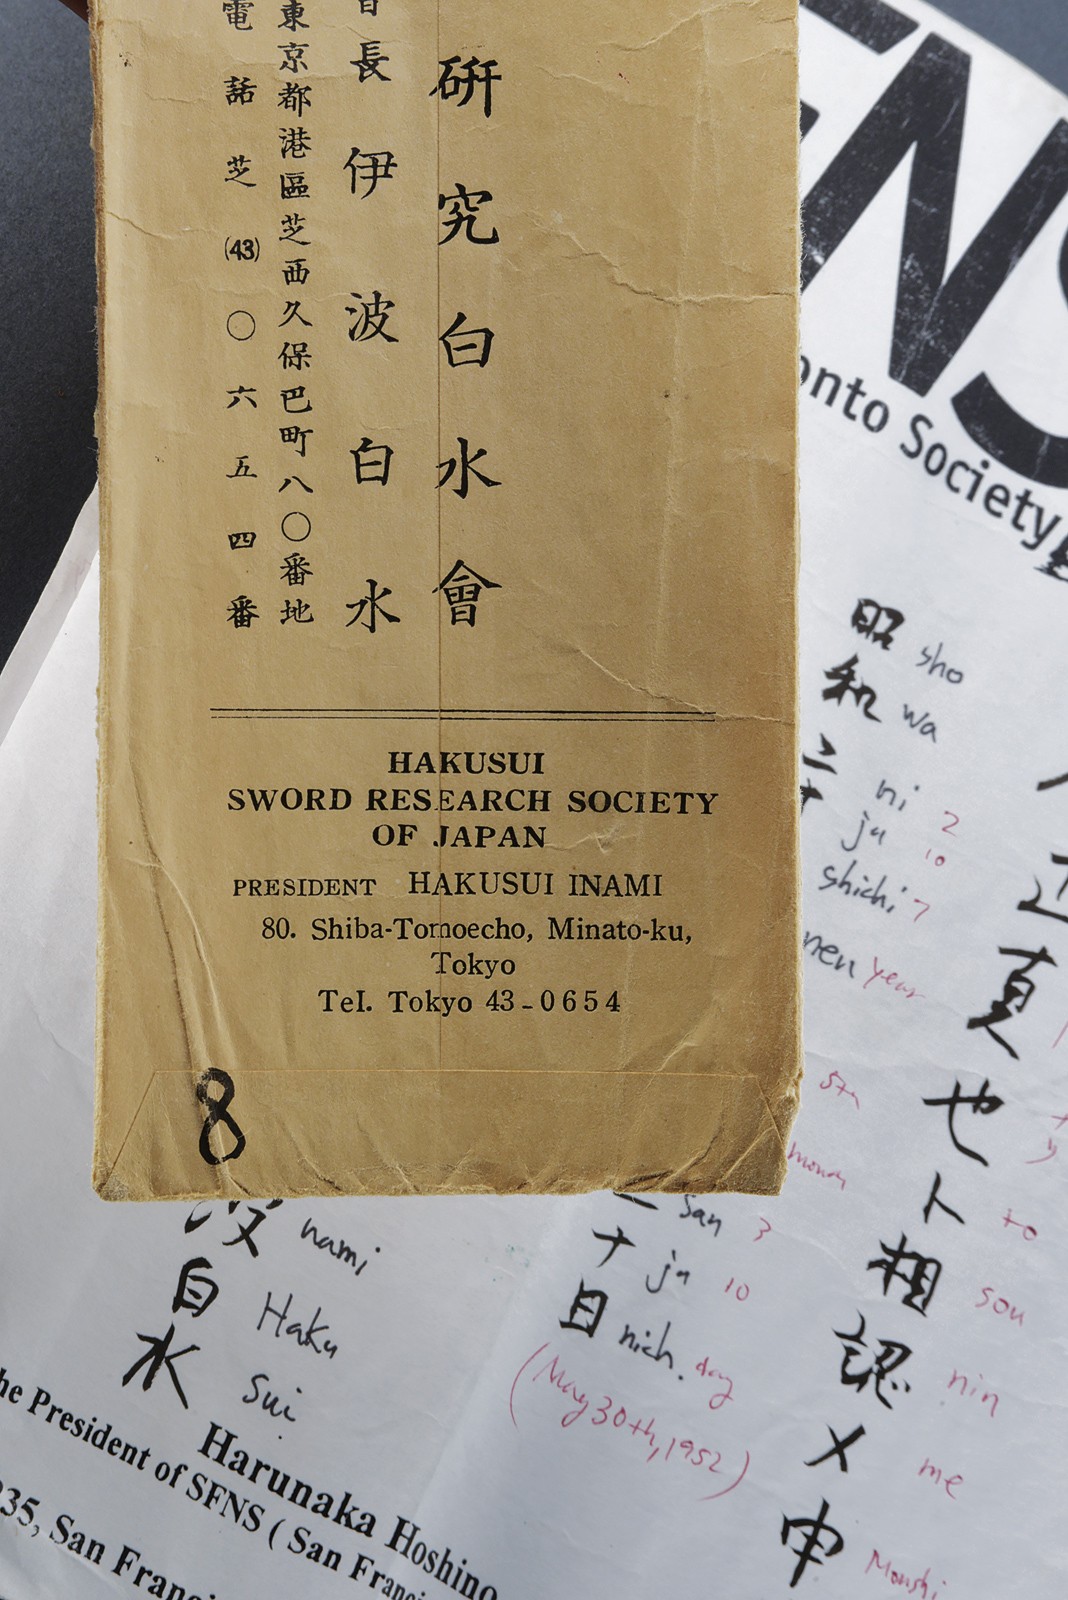 研究白水會
長 伊波白水
東京都港區芝西久保巴町八〇番地
電話芝(43)〇六五四番
HAKUSUI
SWORD RESEARCH SOCIETY
OF JAPAN
PRESIDENT HAKUSUI INAMI
80. Shiba-Tomoecho, Minato-ku,
Tokyo
Tel. Tokyo 43-0654
8
NS
onto Society
昭 sho
和 wa
二 ni 2
ju 10
shichi 7
nen year
5th
month
san 3
十 ju 10
日 nich. day
(May 30th, 1952)
真
也
ト to
相 sou
認 nin
メ me
申 Moushi
波 nami
白 Haku
水 sui
Harunaka Hoshino
he President of SFNS ( San Franci
935, San Franci